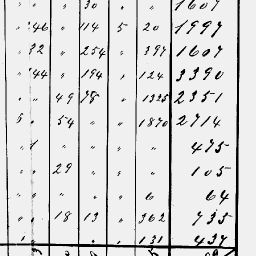 " " " 30 " " 1607
" 46 " 114 5 20 1997
" 32 " 254 " 397 1607
" 44 " 194 " 124 3390
" " 49 78 " 1325 2351
5 " 54 " " 1870 2714
" 1 " " " " 475
" " 29 " " " 105
" " " " " 6 64
" " 18 13 " 362 735
" " " " 131 437